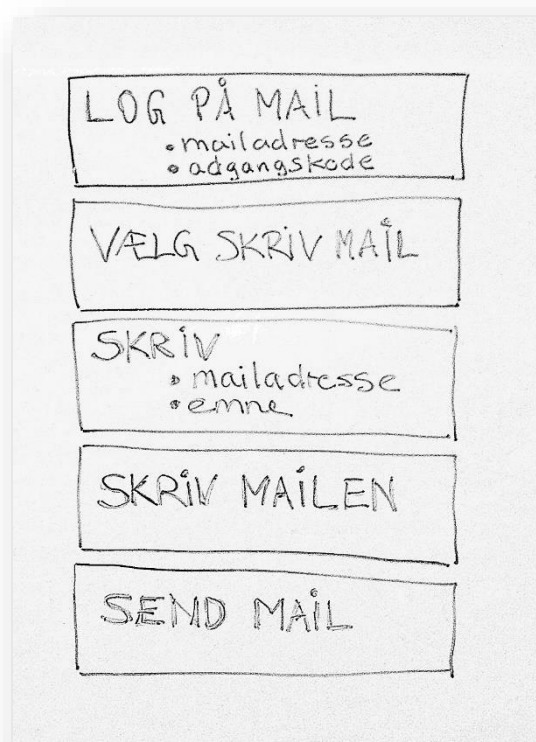 LOG PÅ MAIL
• mailadresse
• adgangskode
VÆLG SKRIV MAIL
SKRIV
• mailadresse
• emne
SKRIV MAILEN
SEND MAIL